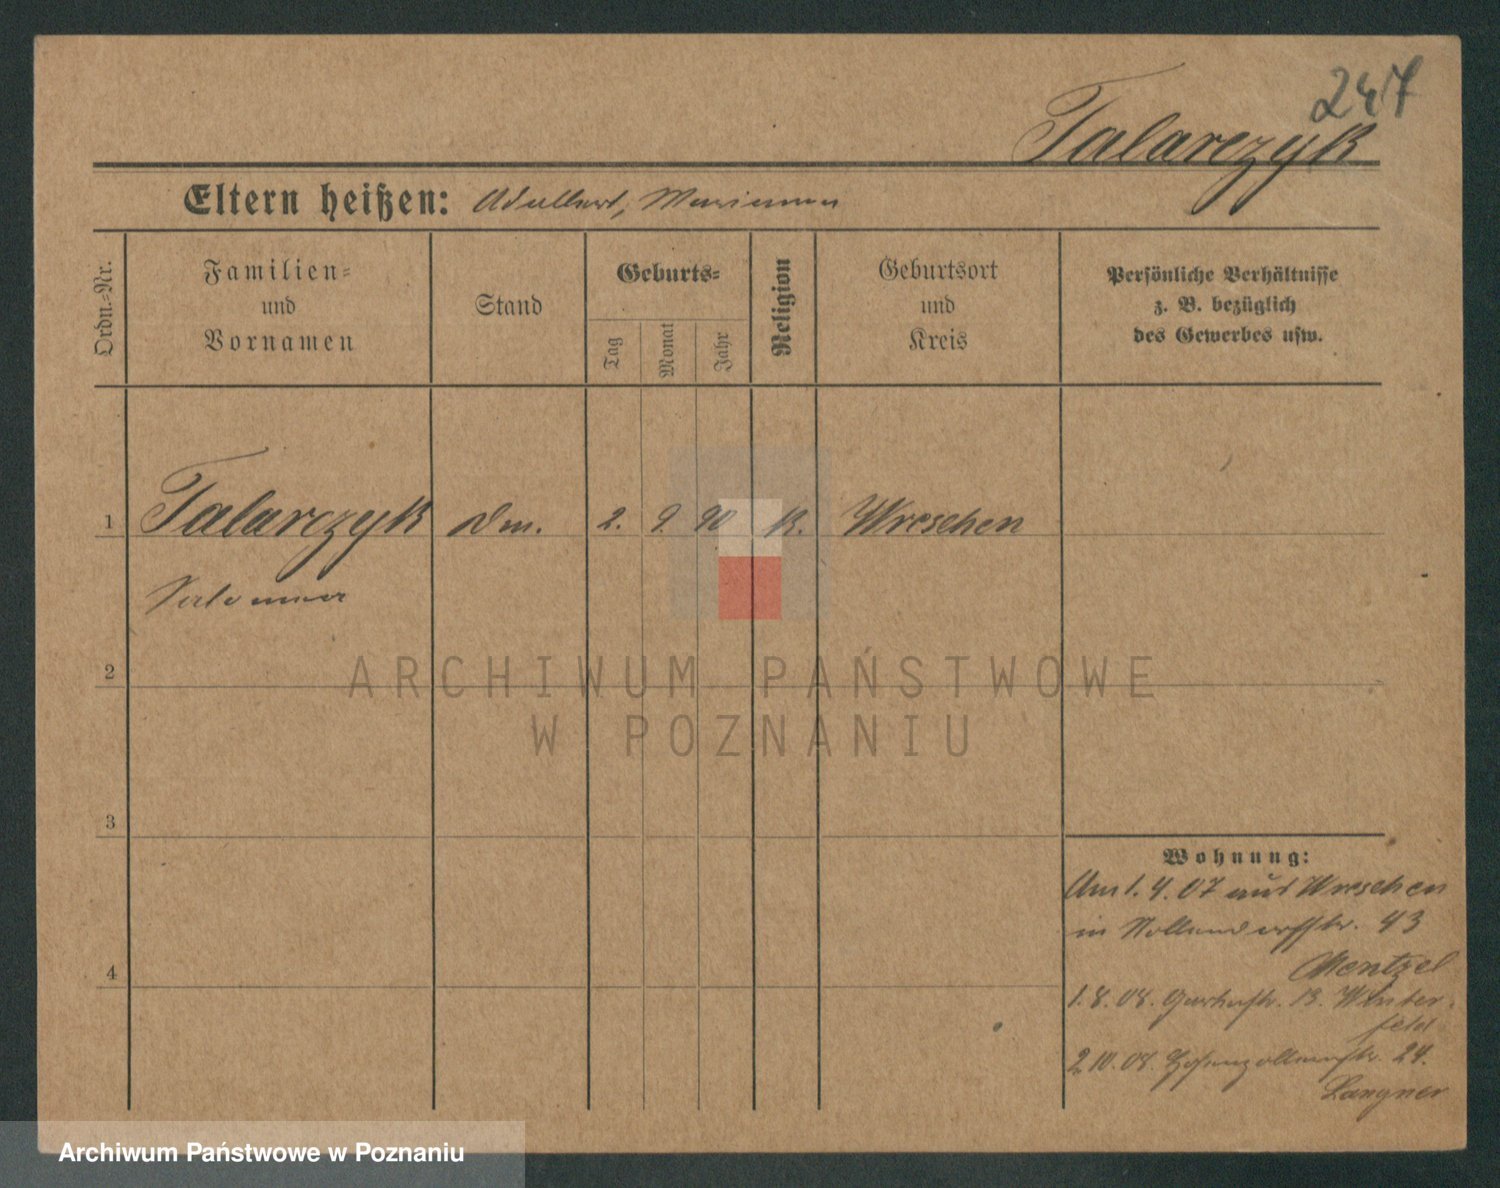 247
Talarczyk
Eltern heißen: Adalbert, Marianna
Ordn.-Nr.
Familien- und Vornamen
Stand
Geburts-
Tag
Monat
Jahr
Religion
Geburtsort und Kreis
Persönliche Verhältnisse z. B. bezüglich des Gewerbes usw.
1 Talarczyk Dm. 2. 9. 90 K. Wreschen
Salomea
2
3
4
Wohnung:
Am 1. 4. 07 aus Wreschen
in Nollendorfstr. 43
Mentzel
1. 8. 08. Gartenstr. 13. Winter-
feld
2. 10. 08. Hohenzollernstr. 24.
Langner
ARCHIWUM PAŃSTWOWE
W POZNANIU
Archiwum Państwowe w Poznaniu